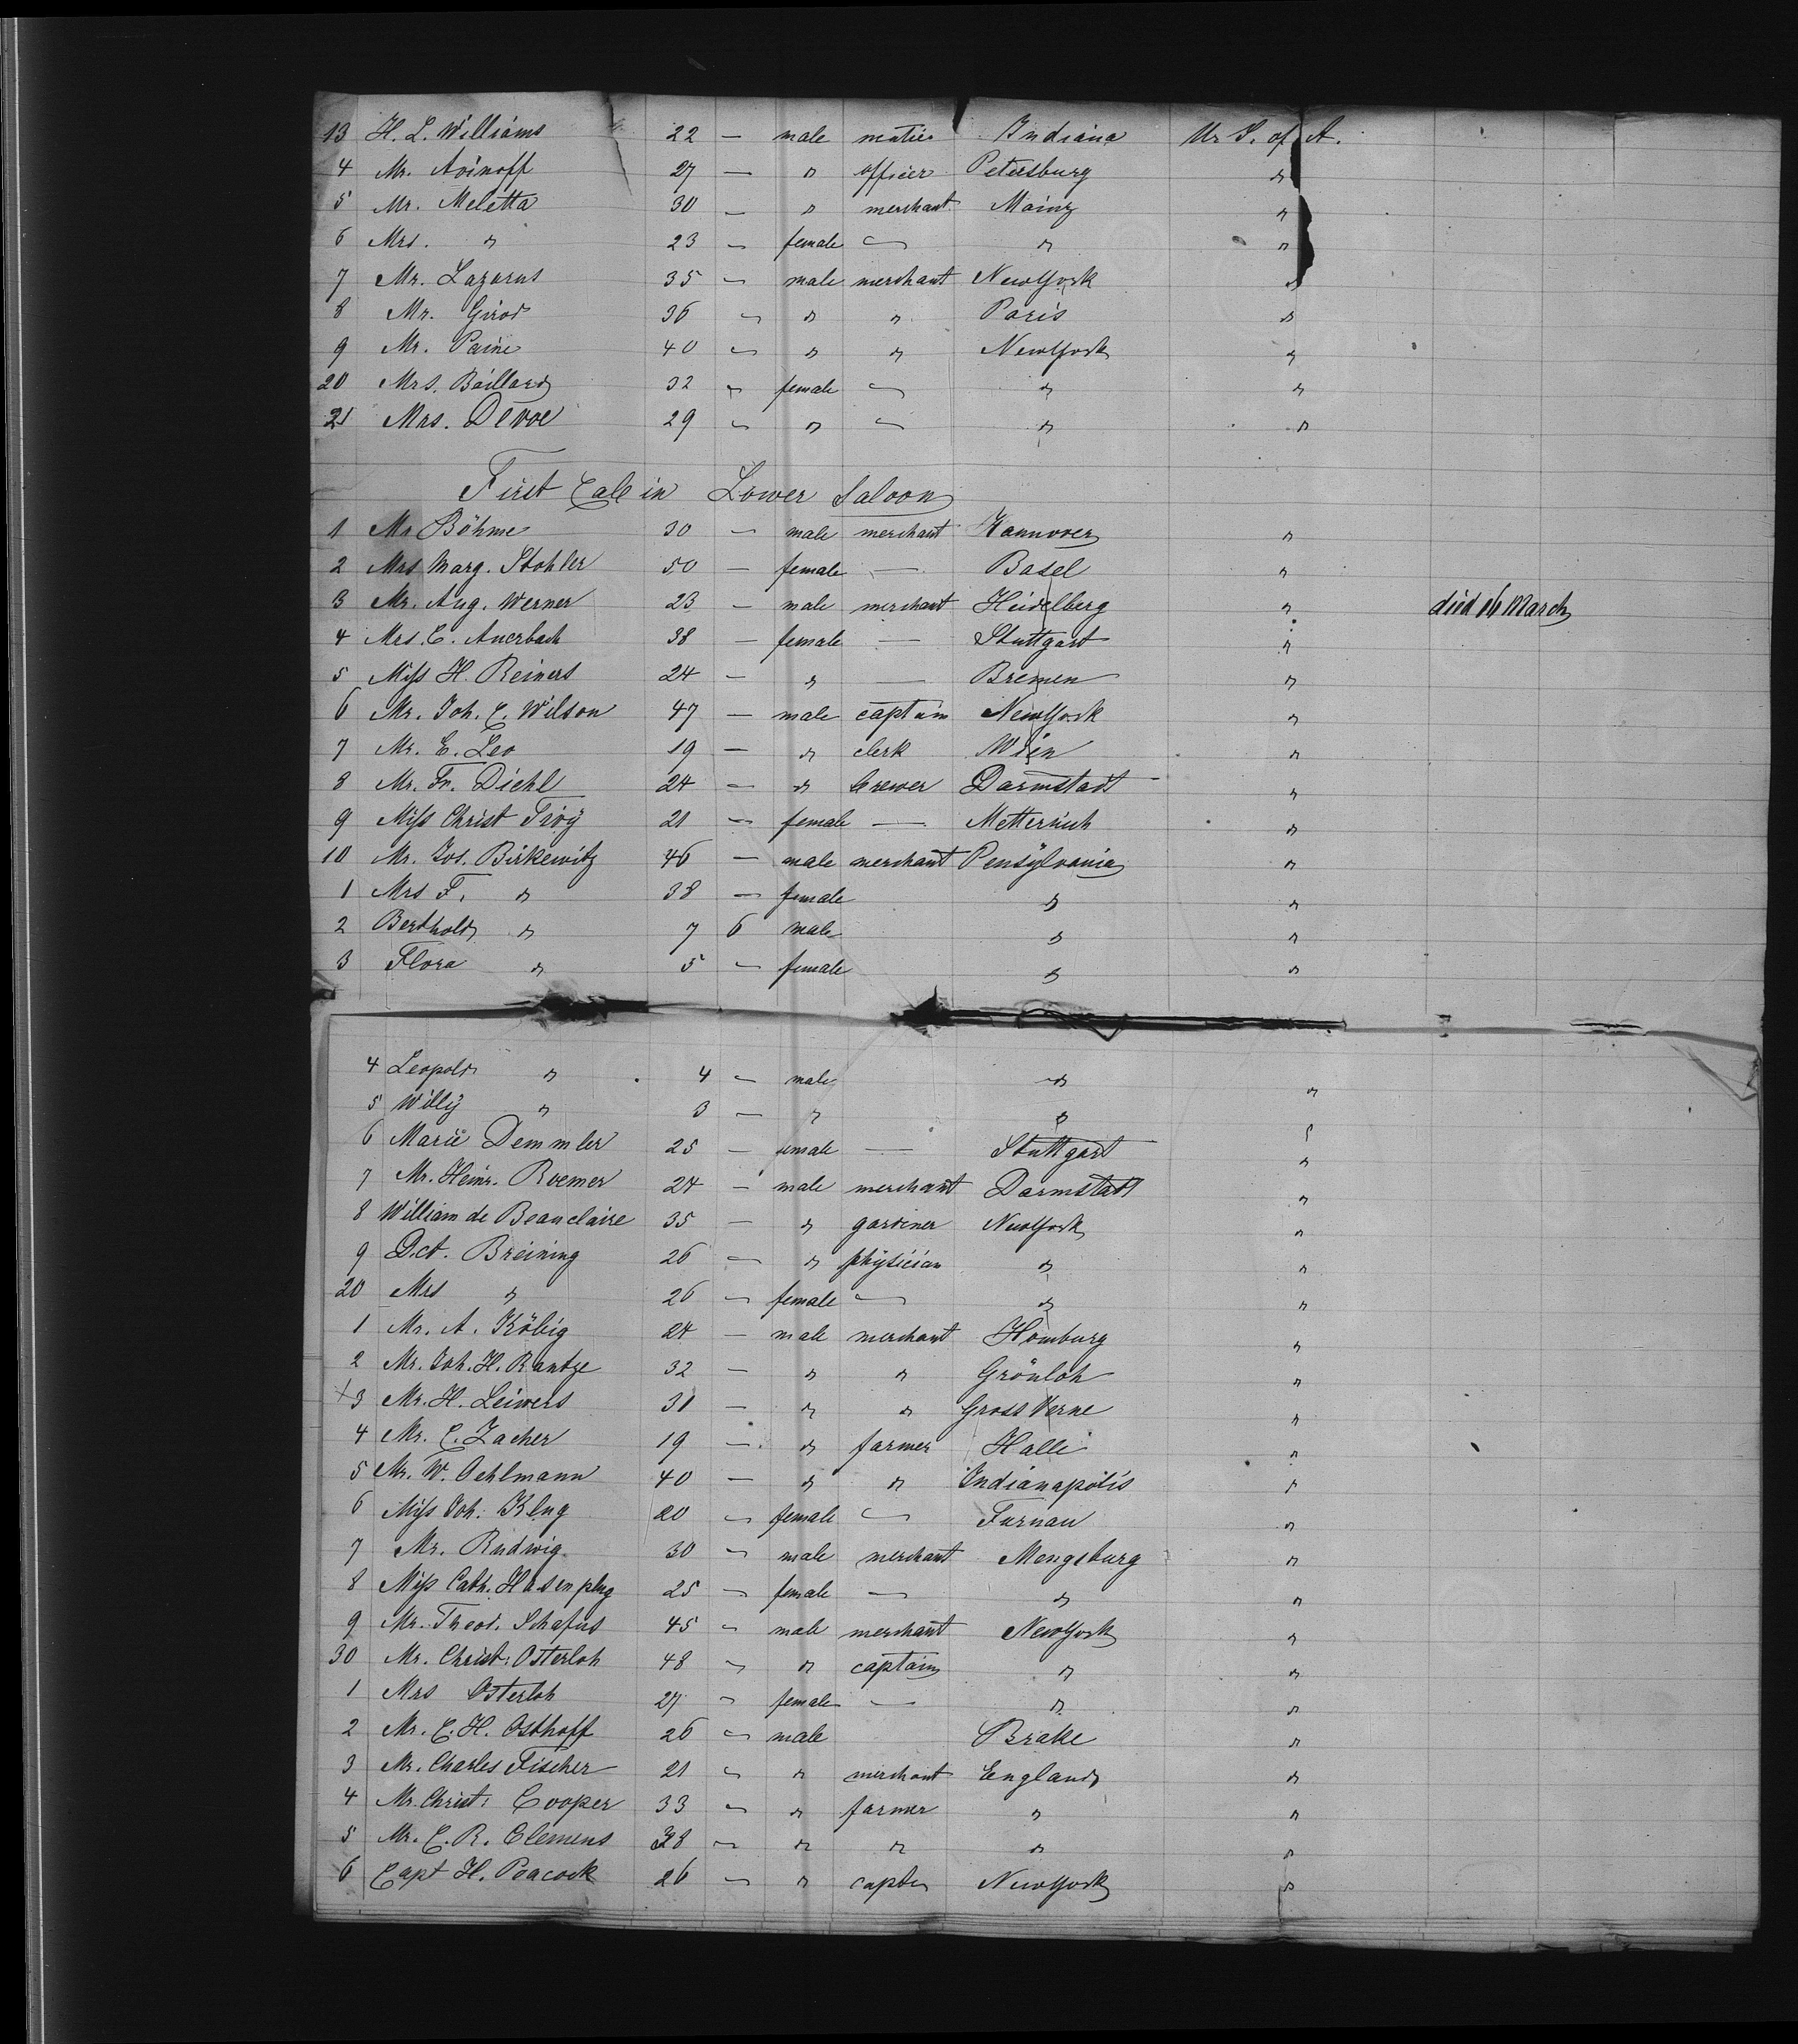 13 H. L. Williams 22 — male Indiana U. S. of A.
4 Mr. Avinoff 27 — " officer Petersburg "
5 Mr. Meletta 30 — " merchant Mainz "
6 Mrs. " 23 — female — " "
7 Mr. Lazarus 35 — male merchant NewYork "
8 Mr. Girod 36 — " " Paris "
9 Mr. Paine 40 — " " NewYork "
20 Mrs. Baillard 32 — female — " "
21 Mrs. Devoe 29 — " — " "
First Cabin Lower Saloon
1 Mr Böhme 30 — male merchant Hannover "
2 Mrs Marg. Stohler 50 — female — Basel "
3 Mr. Aug. Werner 23 — male merchant Heidelberg " died 16 March
4 Mrs. C. Auerbach 38 — female — Stuttgart "
5 Miss H. Reiners 24 — " — Bremen "
6 Mr. Joh. C. Wilson 47 — male captain NewYork "
7 Mr. E. Leo 19 — " clerk Wien "
8 Mr. Fr. Diehl 24 — " brewer Darmstadt "
9 Miss Christ 21 — female — Metternich "
10 Mr. Jos. Birkewitz 46 — male merchant Pensylvania "
1 Mrs F. " 38 — female " "
2 Berthold " 7 6 male " "
3 Flora " 5 — female " "
4 Leopold " 4 — male " "
5 Willy " 3 — " " "
6 Marie Demmler 25 — female — Stuttgart "
7 Mr. Heinr. Roemer 24 — male merchant Darmstadt "
8 William de Beauclaire 35 — " gardiner NewYork "
9 Dct. Breining 26 — " physician " "
20 Mrs " 26 — female — " "
1 Mr. A. Köbig 24 — male merchant Homburg "
2 Mr. Joh. H. Rantze 32 — " " Grönloh "
+3 Mr. H. Leiwers 31 — " " Gross Verne "
4 Mr. C. Zacher 19 — " farmer Halle "
5 Mr. W. Oehlmann 40 — " " Indianapolis "
6 Miss Joh. Klug 20 — female — Furnau "
7 Mr. Rudwig 30 — male merchant Mengsburg "
8 Miss Cath. Hasenplug 25 — female — " "
9 Mr. Theod. Schafus 45 — male merchant NewYork "
30 Mr. Christ: Osterloh 48 — " captain " "
1 Mrs Osterloh 27 — female — " "
2 Mr. C. H. Osthoff 26 — male Brake "
3 Mr. Charles Fischer 21 — " merchant England "
4 Mr. Christ: Cooper 33 — " farmer " "
5 Mr. C. R. Clemens 38 — " " " "
6 Capt H. Peacock 26 — " captn NewYork "